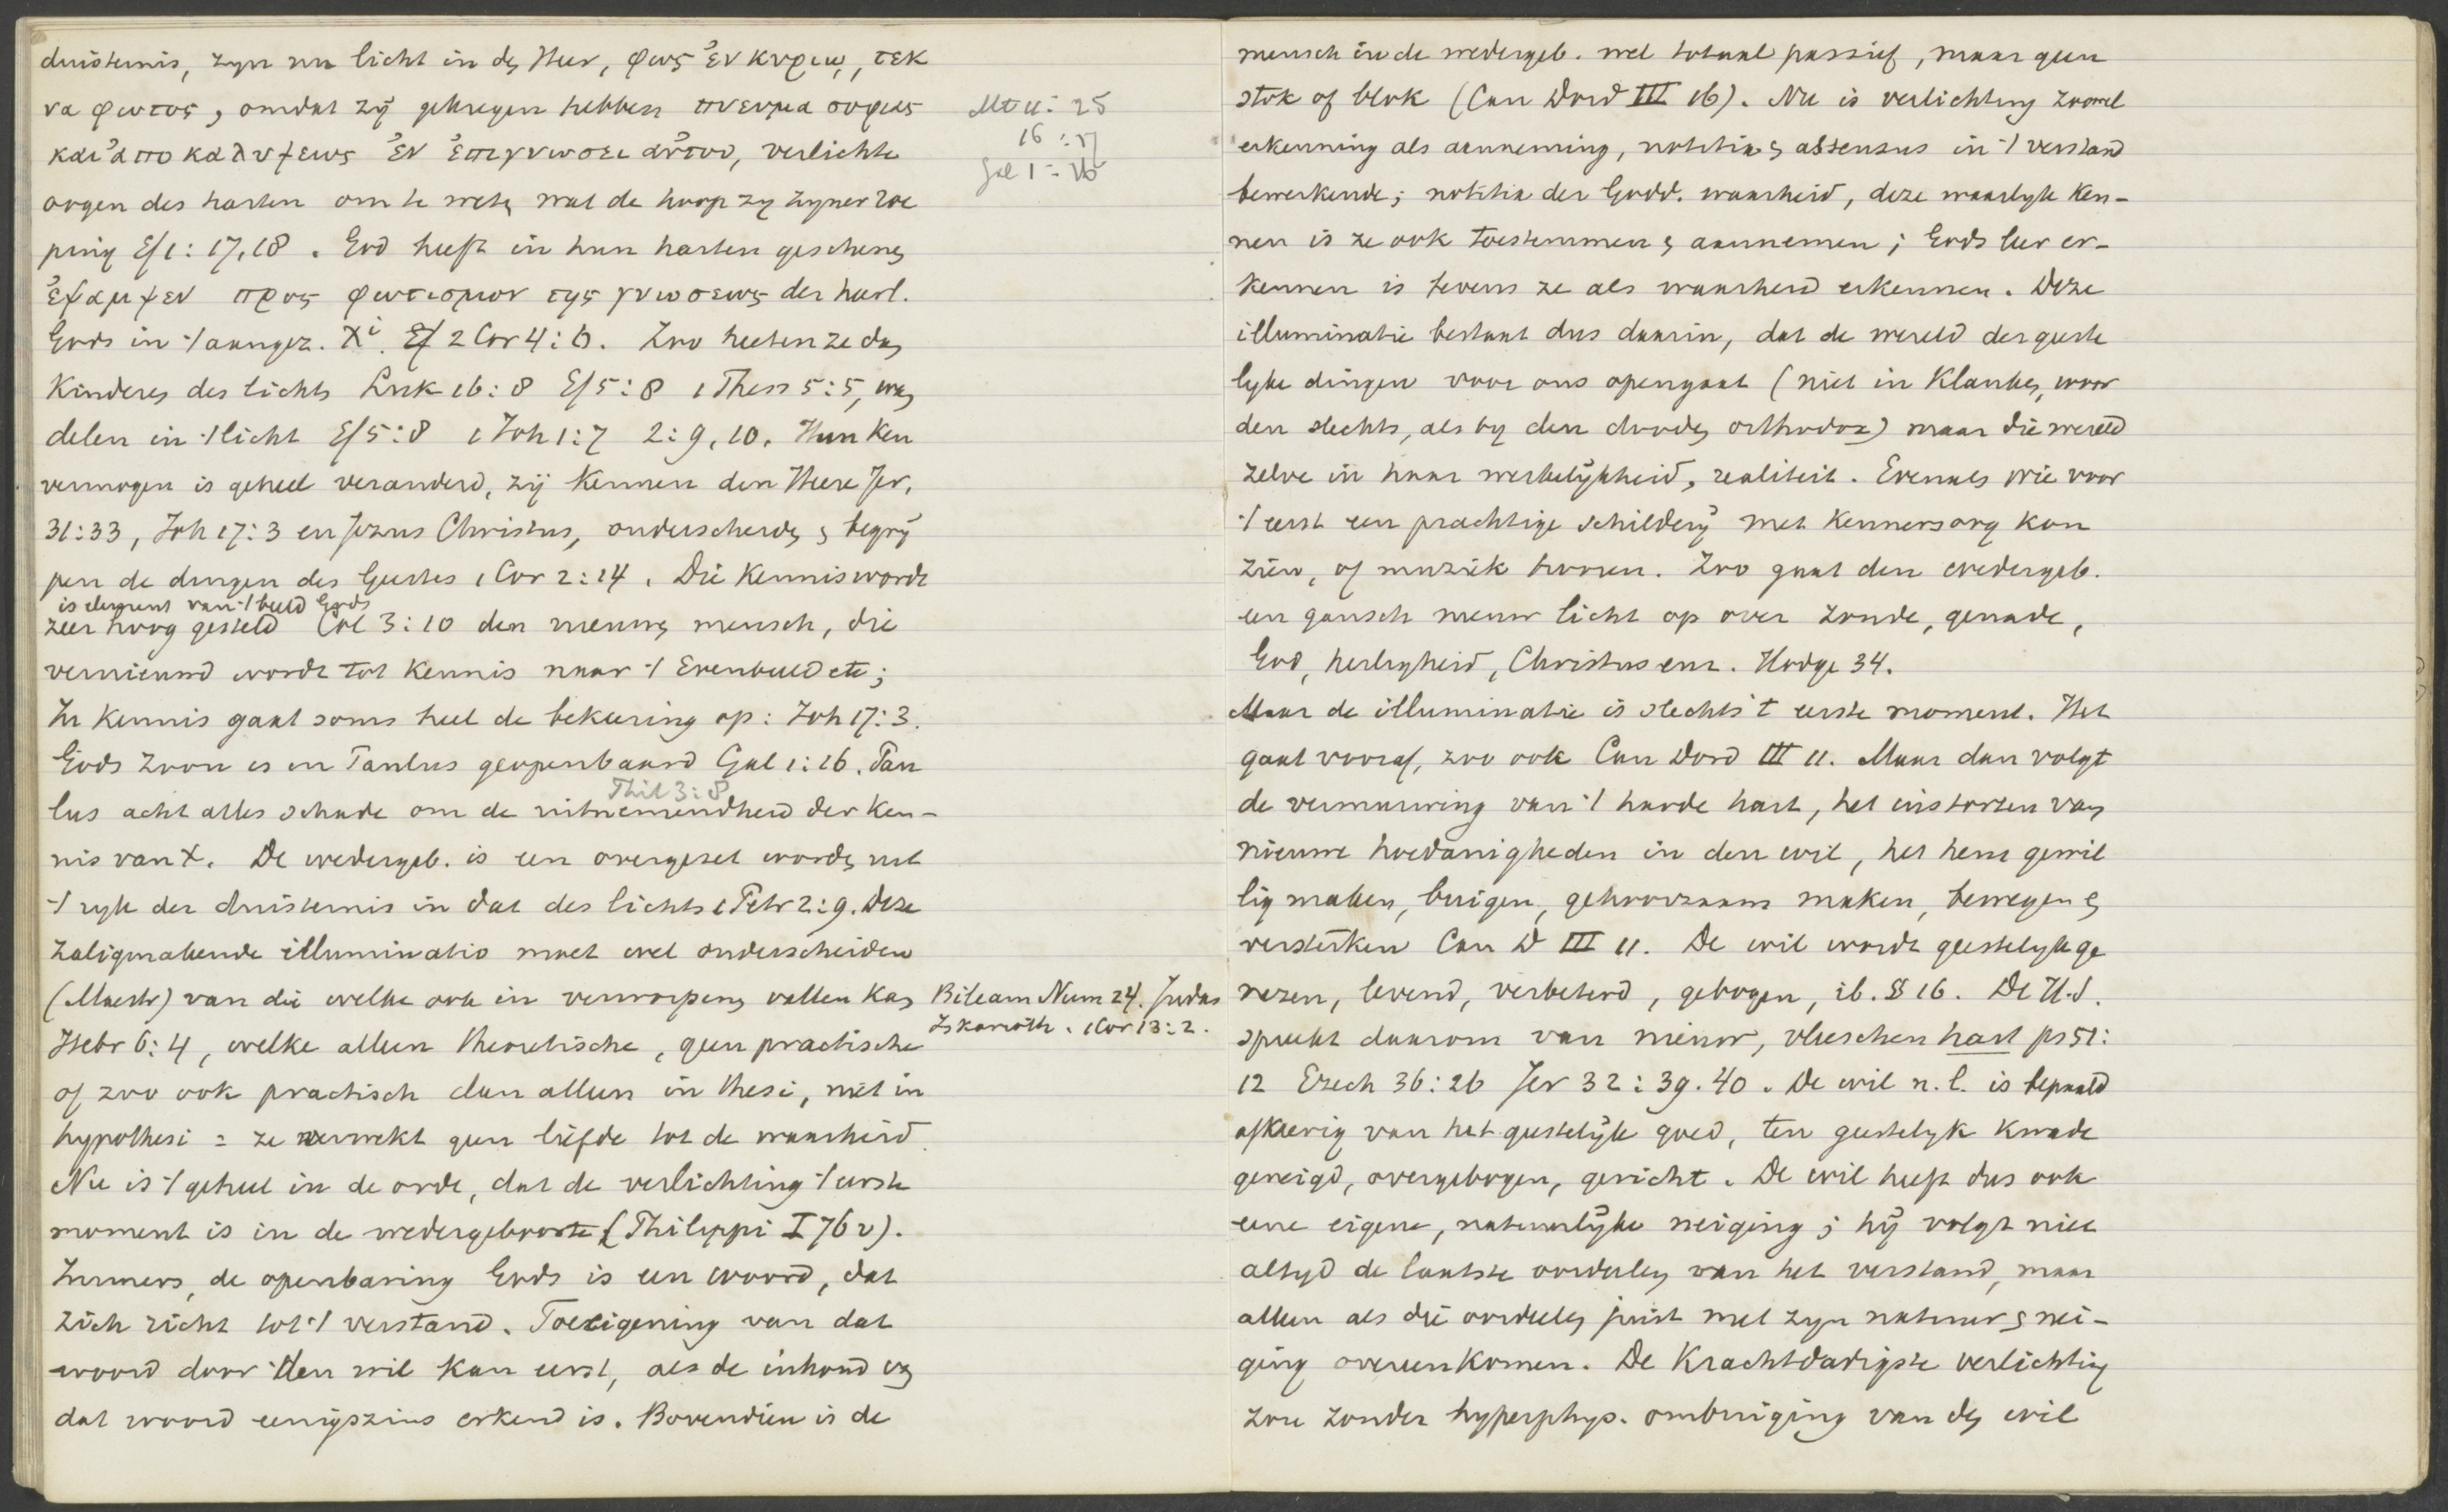 duisternis, zyn nu licht in den Heer, φως ἐν κυριῳ, τεκ
να φωτος, omdat zij gekregen hebben πνευμα σοφιας
και ἀποκαλυψεως ἐν ἐπιγνωσει αὐτου, verlichte
oogen des harten om te weten wat de hoop zy zyner roe
ping Ef 1:17,18. God heeft in hun harten geschenen
ἐλαμψεν προς φωτισμον της γνωσεως der heerl.
Gods in 't aangez. Xi. 2 Cor 4:6. Zoo heeten ze dan
Kinderen des lichts Luk 16:8 Ef 5:8 1 Thess 5:5, wan
delen in 't licht Ef 5:8 1 Joh 1:7 2:9,10. Hun ken
vermogen is geheel veranderd, zij kennen den Heere Jer.
31:33, Joh 17:3 en Jezus Christus, onderscheiden & begrij
pen de dingen des Geestes 1 Cor 2:14. Die kennis wordt
is element van 't beeld Gods
zeer hoog gesteld Col 3:10 den nieuwen mensch, die
vernieuwd wordt tot kennis naar 't Evenbeeld etc;
In kennis gaat soms heel de bekeering op: Joh 17:3.
Gods Zoon is in Paulus geopenbaard Gal 1:16. Pau
Phil 3:8
lus acht alles schade om de uitnemendheid der ken-
nis van X. De wedergeb. is een overgezet worden uit
't ryk der duisternis in dat des lichts 1 Petr 2:9. Deze
zaligmakende illuminatio moet wel onderscheiden
(Maestr) van die welke ook in verworpenen vallen kan
Hebr 6:4, welke alleen theoretische, geen practische
of zoo ook practisch dan alleen in thesi, niet in
hypothesi = ze verwekt geen liefde tot de waarheid.
Nu is 't geheel in de orde, dat de verlichting 't eerste
moment is in de wedergeboorte (Philippi I 76 v).
Immers, de openbaring Gods is een woord, dat
zich richt tot 't verstand. Toeeigening van dat
woord door den wil kan eerst, als de inhoud van
dat woord eenigszins erkend is. Bovendien is de
Mt 11:25
16:17
Gal 1:16
Bileam Num 24. Judas
Iskarioth. 1 Cor 13:2.
mensch in de wedergeb. wel totaal passief, maar geen
stok of blok (Can Dord III 16). Nu is verlichting zoowel
erkenning als aanneming, notitia & assensus in 't verstand
bewerkende; notitia der Godd. waarheid, deze waarlyk ken-
nen is ze ook toestemmen & aannemen; Gods leer er-
kennen is tevens ze als waarheid erkennen. Deze
illuminatie bestaat dus daarin, dat de wereld der geeste
lyke dingen voor ons opengaat (niet in klanken, woor
den slechts, als by den dooden orthodox) maar die wereld
zelve in haar werkelijkheid, realiteit. Evenals wie voor
't eerst een prachtige schilderij met kennersoog kon
zien, of muziek hooren. Zoo gaat den wedergeb.
een gansch nieuw licht op over zonde, genade,
God, heiligheid, Christus enz. Hodge 34.
Maar de illuminatie is slechts 't eerste moment. Het
gaat vooraf, zoo ook Can Dord III 11. Maar dan volgt
de vermurwing van 't harde hart, het instorten van
nieuwe hoedanigheden in den wil, het hem gewil
lig maken, buigen, gehoorzaam maken, bewegen &
versterken Can D III 11. De wil wordt geestelyk ge
nezen, levend, verbeterd, gebogen, ib. § 16. De H.S.
spreekt daarom van nieuw, vleeschen hart ps 51:
12 Ezech 36:26 Jer 32:39.40. De wil n.l. is bepaald
afkeerig van het geestelijk goed, ten geestelyk kwade
geneigd, overgebogen, gericht. De wil heeft dus ook
eene eigene, natuurlijke neiging; hij volgt niet
altyd de laatste oordeelen van het verstand, maar
alleen als die oordeelen juist met zyn natuur & nei-
ging overeenkomen. De krachtdadigste verlichting
zou zonder hyperphys. ombuiging van den wil